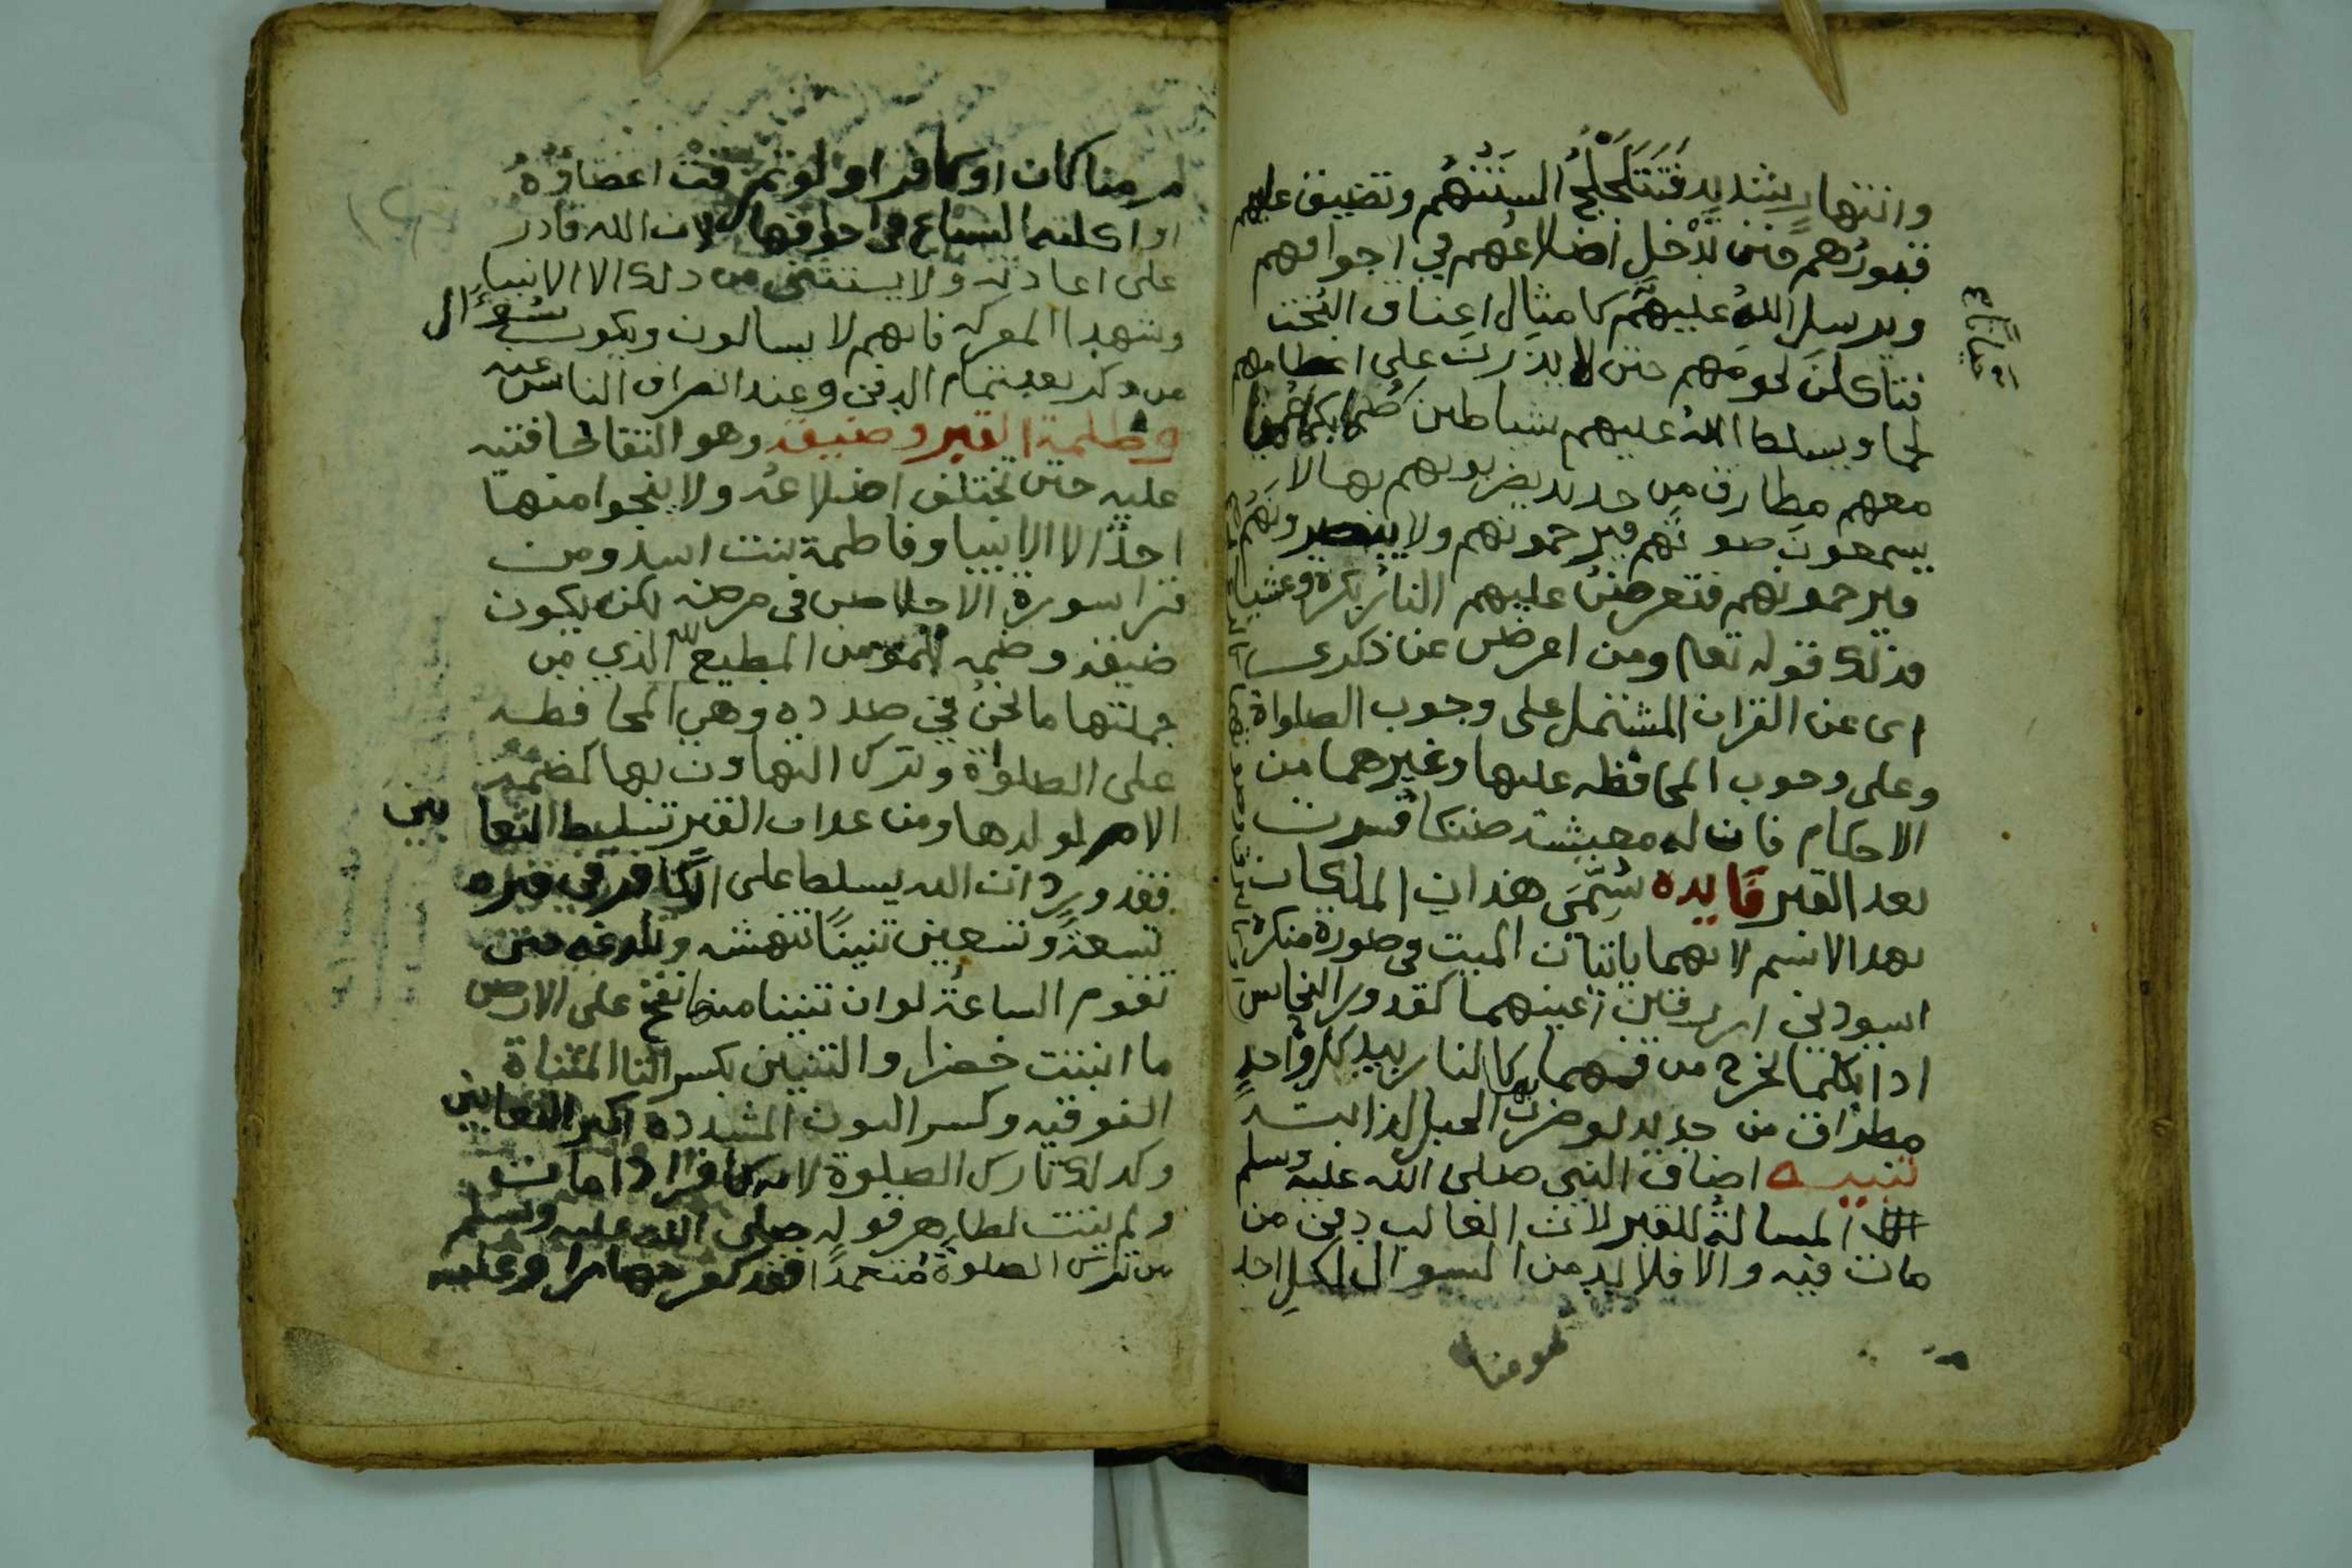 وانتهار شديد فَتَتَلَجْلَجُ السنتُهُم وتضيق عليهم
قبورُهم حتى تدْخل اضلاعُهم في اجوافهم
ويرسل اللهُ عليهم كامثال اعناق البُخت
فتأكلن لحومَهم حتى لا يذرن على اعظامهم
لحما ويسلط الله عليهم شياطين صُما بكما عُميا
معهم مطارق من حديد يضربونهم بها لا
يسمعون صوتهم فيرحمونهم ولا يبصرونهم
فيرحمونهم فتعرض عليهم النار بكرة وعشيا
فذلك قوله تعالى ومن اعرض عن ذكري
اى عن القران المشتمل على وجوب الصلواة
وعلى وجوب المحافظه عليها وغيرهما من
الاحكام فان له معيشة ضنكا فسرت
بعد القبر فايده سُمّيَ هذان الملكان
بهدا الاسم لانهما ياتيان الميت في صورة منكرة
اسودين ازرقين اعينهما كقدور النحاس
اذا تكلما يخرج من فمهما كالنار بيد كل واحد
مطراق من حديد لو ضرب بها الجبل لذابت
تنبيه اضاف النبي صلى الله عليه وسلم
المسالة للقبر لان الغالب دفن من
مات فيه والا فلا بد من السوال لكل احد
مومنا
مومنا كان او كافرا ولو تمزقت اعضاؤهُ
او اكلتها السباع في اجوافها لان الله قادر
على اعادته ولا يستثنى من ذلك الا الانبياء
وشهدا المعركه فانهم لا يسالون ويكون سُؤال
من ذكر بعد تمام الدفن وعند انصراف الناس عنه
وظلمة القبر وضيقه وهو التقا حافتيه
عليه حتى تختلف اضلاعُه ولا ينجوا منها
احدٌ الا الانبيا وفاطمة بنت اسد ومن
قرا سورة الاخلاص في مرضه لكن يكون
ضيقه وضمه للمؤمن المطيع لله الذي من
جملتها ما نحن في صدده وهي المحافظه
على الصلواة وترك التهاون بها كضمة
الام لولدها ومن عداب القبر تسليط الثعابين
فقد ورد ان الله يسلط على الكافر في قبره
تسعة وتسعين تنينًا تنهشه وتلدغه حتى
تقوم الساعةُ لو ان تنينا منها نفخ على الارض
ما انبتت خضرا والتنين بكسر التا المثناة
الفوقيه وكسر النون المشدده اكبر الثعابين
وكدلك تارك الصلوة لانه كافرا اذا مات
ولم يتب لظاهر قوله صلى الله عليه وسلم
من ترك الصلوة متعمدًا فقد كفر جهارا وعليه